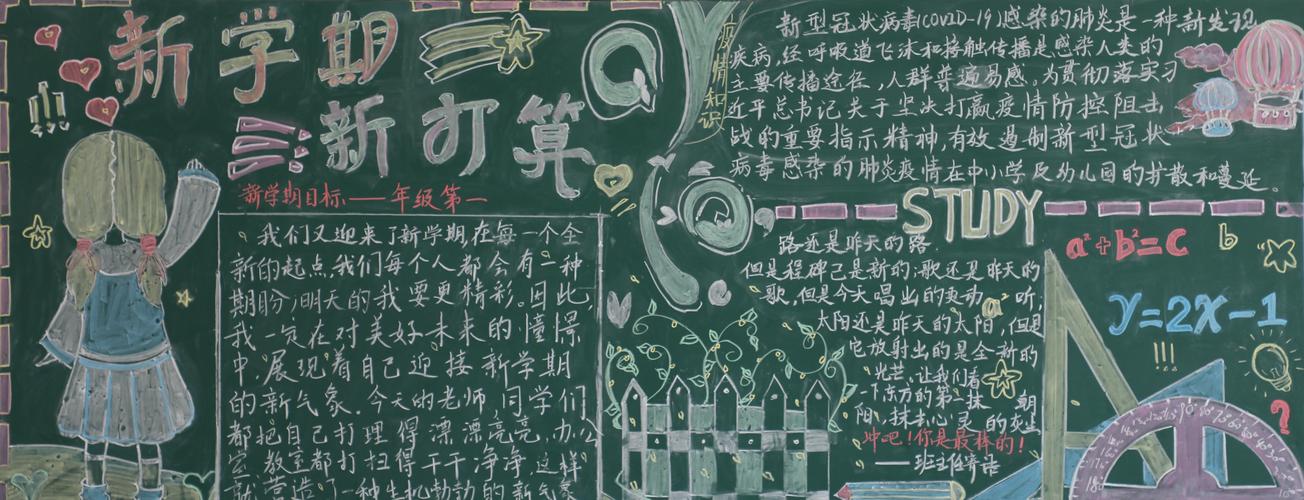 新学期
新打算
新学期目标——年级第一
我们又迎来了新学期,在每一个全
新的起点,我们每个人都会有一种
期盼:明天的我要更精彩。因此
我一定在对美好未来的憧憬
中展现着自己迎接新学期
的新气象。今天的老师,同学们
都把自己打理得漂漂亮亮,办公
室教室都打扫得干干净净,这样
就营造了一种生机勃勃的新气象
疫情知识
新型冠状病毒(COVID-19)感染的肺炎是一种新发现
疾病,经呼吸道飞沫和接触传播是感染人类的
主要传播途径,人群普遍易感。为贯彻落实习
近平总书记关于坚决打赢疫情防控阻击
战的重要指示精神,有效遏制新型冠状
病毒感染的肺炎疫情在中小学及幼儿园的扩散和蔓延。
STUDY
路还是昨天的路,
但是程碑已是新的;歌还是昨天的
歌,但是今天唱出的更动听,
太阳还是昨天的太阳,但是
它放射出的是全新的
光芒,让我们看
一下东方的第一抹朝
阳,抹去心灵的灰尘
冲吧!你是最棒的!
——班主任寄语
a²+b²=c
b
y=2x-1
!!!
?